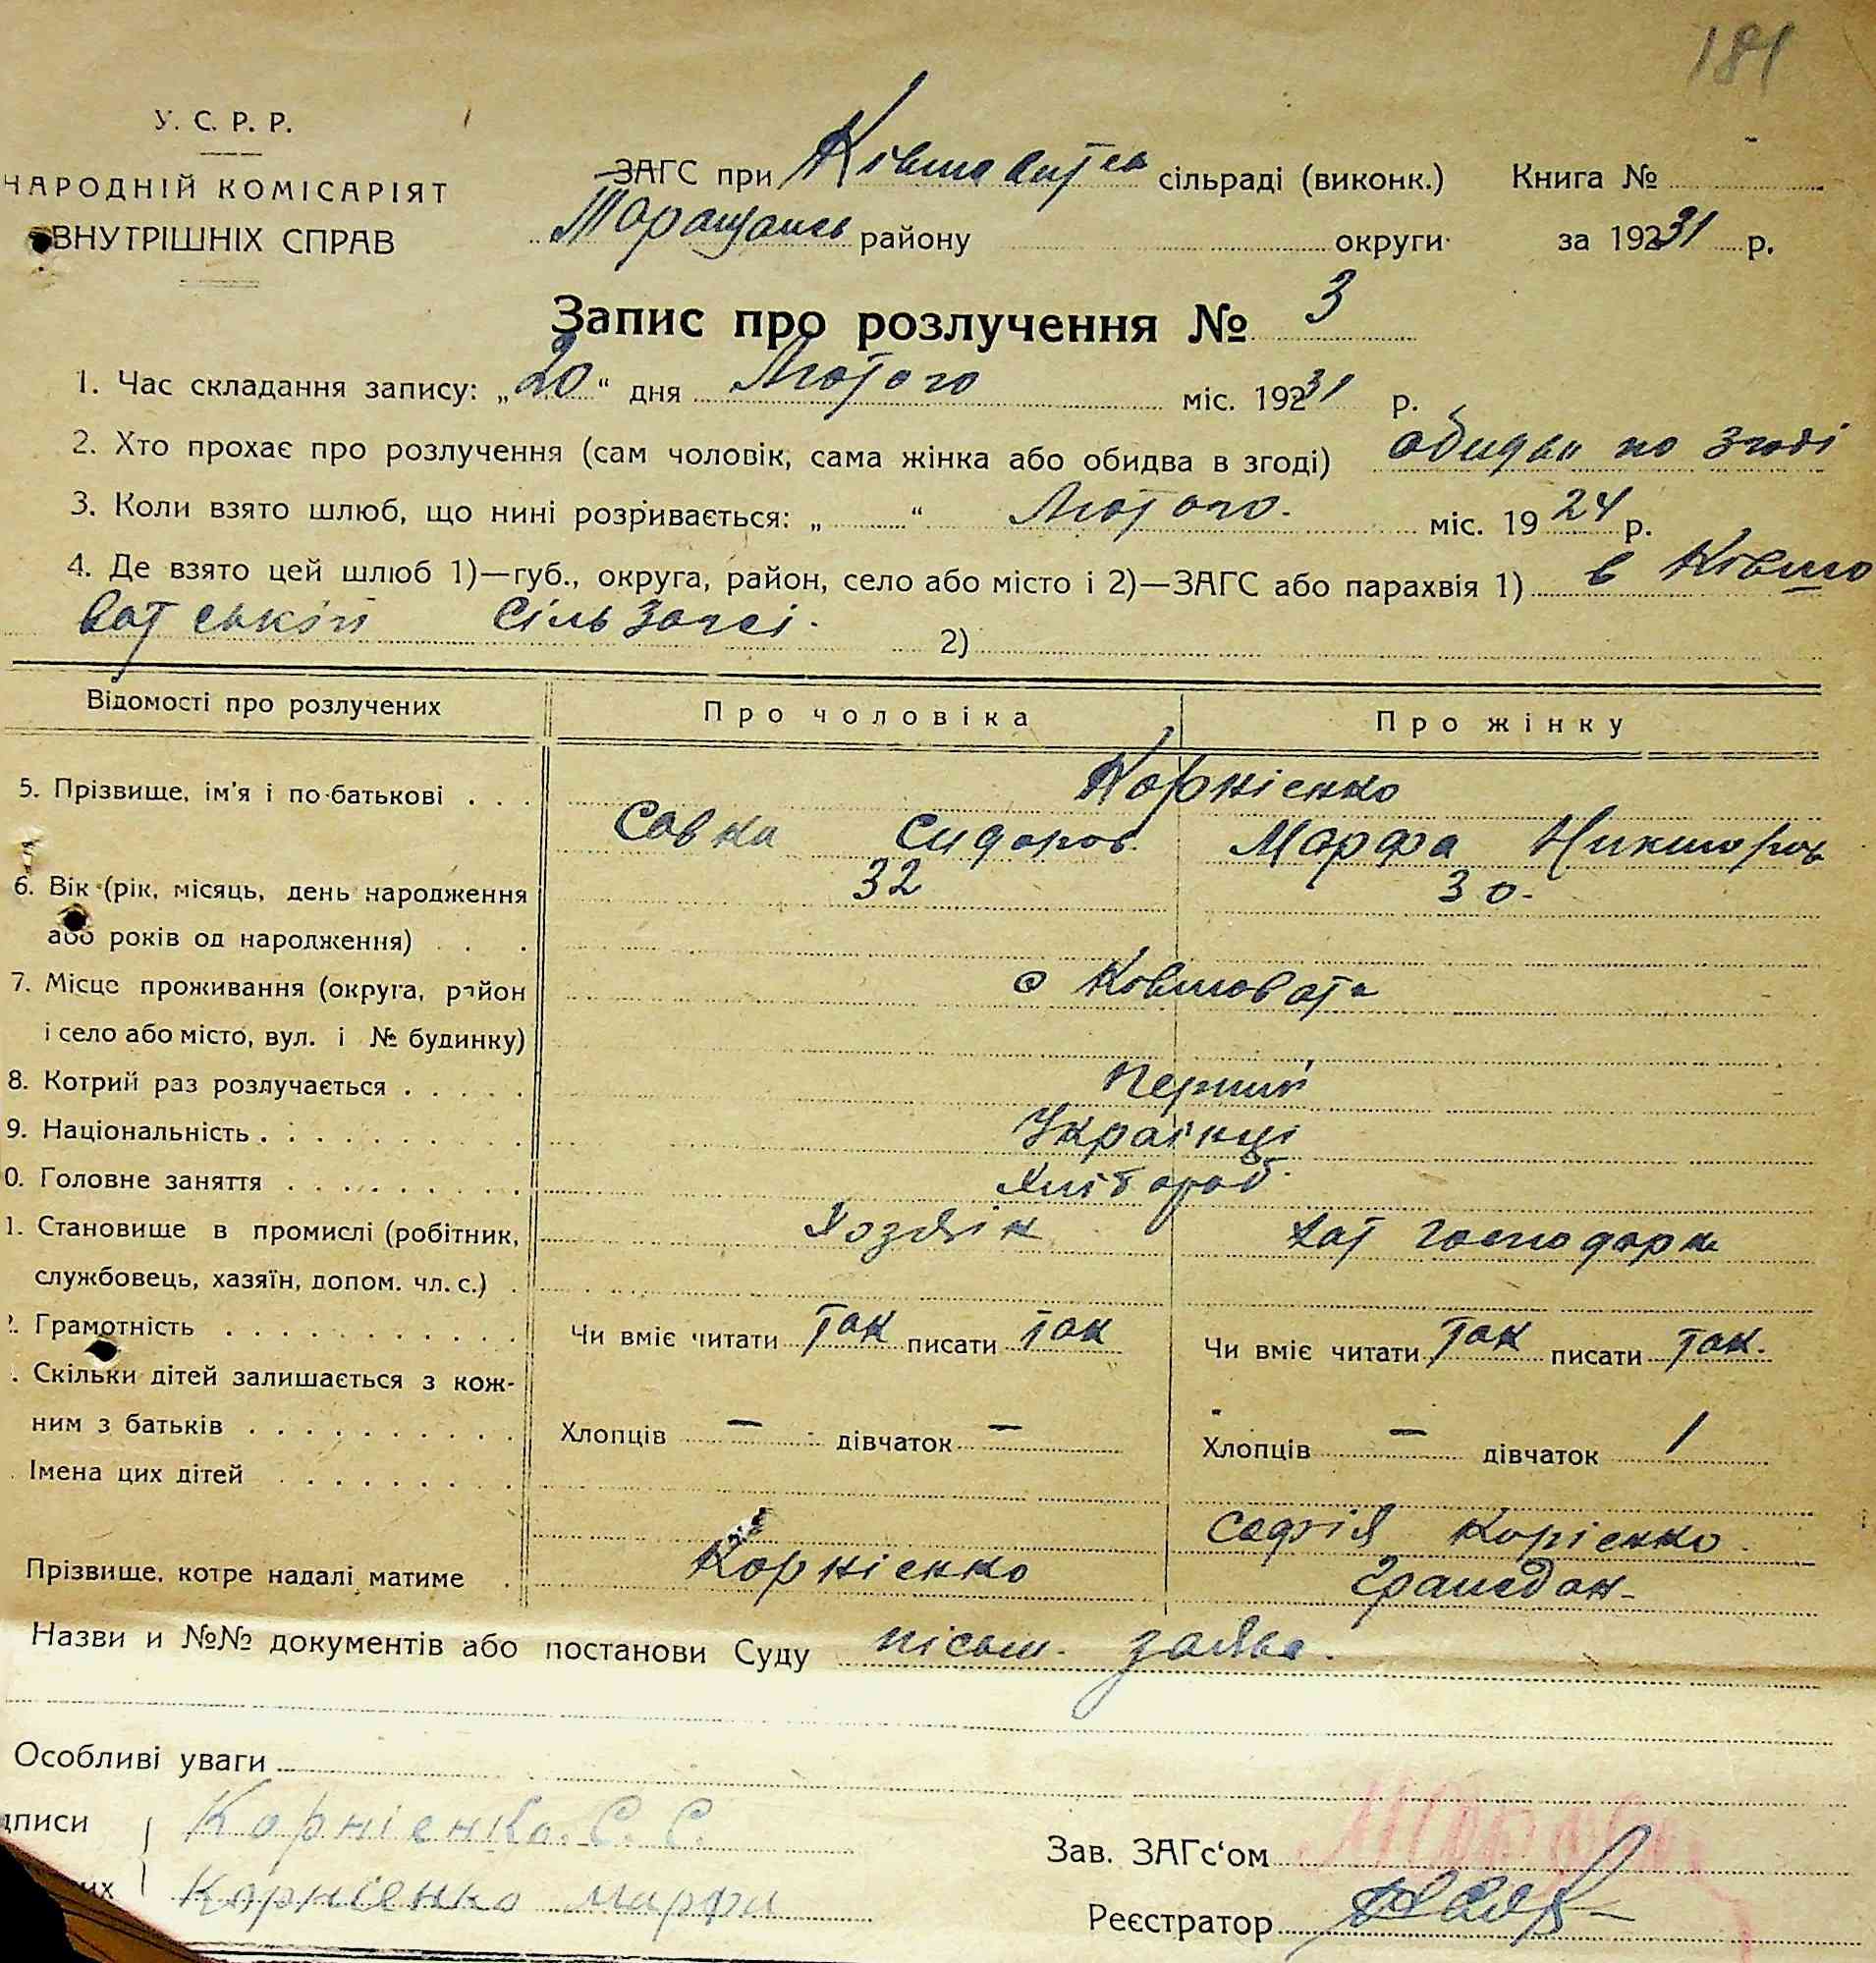 181
У. С. Р. Р.
НАРОДНІЙ КОМІСАРІЯТ
ВНУТРІШНІХ СПРАВ
ЗАГС при Ківшоватск сільраді (виконк.) Книга №
Таращанськ району округи за 19231 р.
Запис про розлучення № 3
1. Час складання запису: „20“ дня Лютого міс. 19231 р.
2. Хто прохає про розлучення (сам чоловік, сама жінка або обидва в згоді) обидва по згоді
3. Коли взято шлюб, що нині розривається: „ “ Лютого. міс. 1924 р.
4. Де взято цей шлюб 1)—губ., округа, район, село або місто і 2)—ЗАГС або парахвія 1) в Ківшо
ватській Сільзагсі. 2)
Відомості про розлучених Про чоловіка Про жінку
5. Прізвище, ім'я і по-батькові . . . Корнієнко
Совка Сидоров Марфа Никифоров
6. Вік (рік, місяць, день народження 32 30.
або років од народження) . . .
7. Місце проживання (округа, район с Ковшовата
і село або місто, вул. і № будинку)
8. Котрий раз розлучається . . . . . Перший
9. Національність . . . . . . . . . . Українці
0. Головне заняття . . . . . . . . . Хлібороб.
1. Становище в промислі (робітник, Хозяїн хат господарка
службовець, хазяїн, допом. чл. с.) .
2. Грамотність . . . . . . . . . . . Чи вміє читати так писати так Чи вміє читати так писати так.
. Скільки дітей залишається з кож-
ним з батьків . . . . . . . . . . Хлопців — дівчаток — Хлопців — дівчаток 1
. Імена цих дітей . . . . . . . . .
Софія Корієнко.
Прізвище, котре надалі матиме . Корнієнко
Назви и №№ документів або постанови Суду пісьм. заява.
Особливі уваги
дписи Корнієнко. С. С.
Зав. ЗАГс‘ом
их Корнієнко марфа
Реєстратор